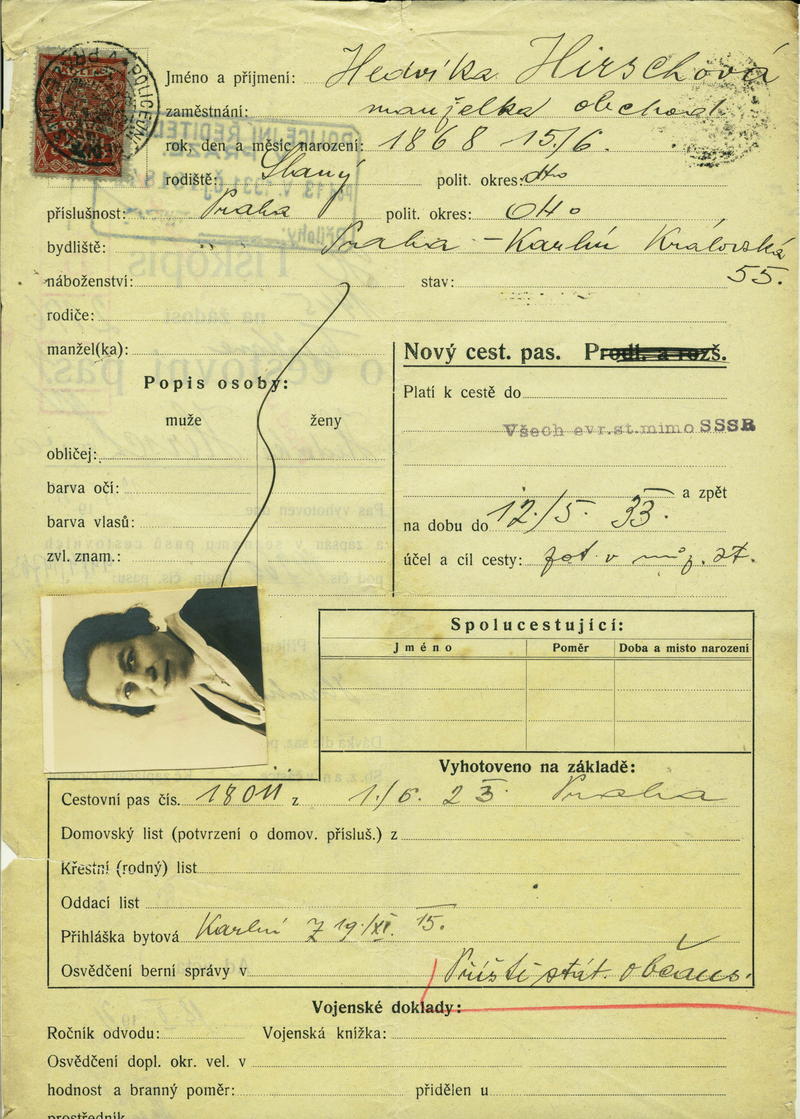 Jméno a příjmení: Hedvika Hirschová
zaměstnání: manželka obchod.
rok, den a měsíc narození: 1868 15/6.
rodiště: Slaný polit. okres: dto
příslušnost: Praha polit. okres: dto
bydliště: Praha - Karlín Královská
náboženství: stav: 55.
rodiče:
manžel(ka):
Popis osoby:
muže ženy
obličej:
barva očí:
barva vlasů:
zvl. znam.:
Nový cest. pas. Prodl. a rozš.
Platí k cestě do
Všech evr.st.mimo SSSR
a zpět
na dobu do 12/5. 33.
účel a cíl cesty:
Spolucestující:
Jméno Poměr Doba a misto narození
Vyhotoveno na základě:
Cestovní pas čís. 18011 z 1./6. 23 Praha
Domovský list (potvrzení o domov. přísluš.) z
Křestní (rodný) list
Oddací list
Přihláška bytová Karlín z 19./XI. 15.
Osvědčení berní správy v Příště stát. občans.
Vojenské doklady:
Ročník odvodu: Vojenská knížka:
Osvědčení dopl. okr. vel. v
hodnost a branný poměr: přidělen u
prostředník